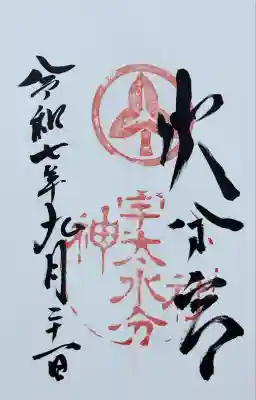 水分宮
宇太水分
神
令和七年九月二十一日